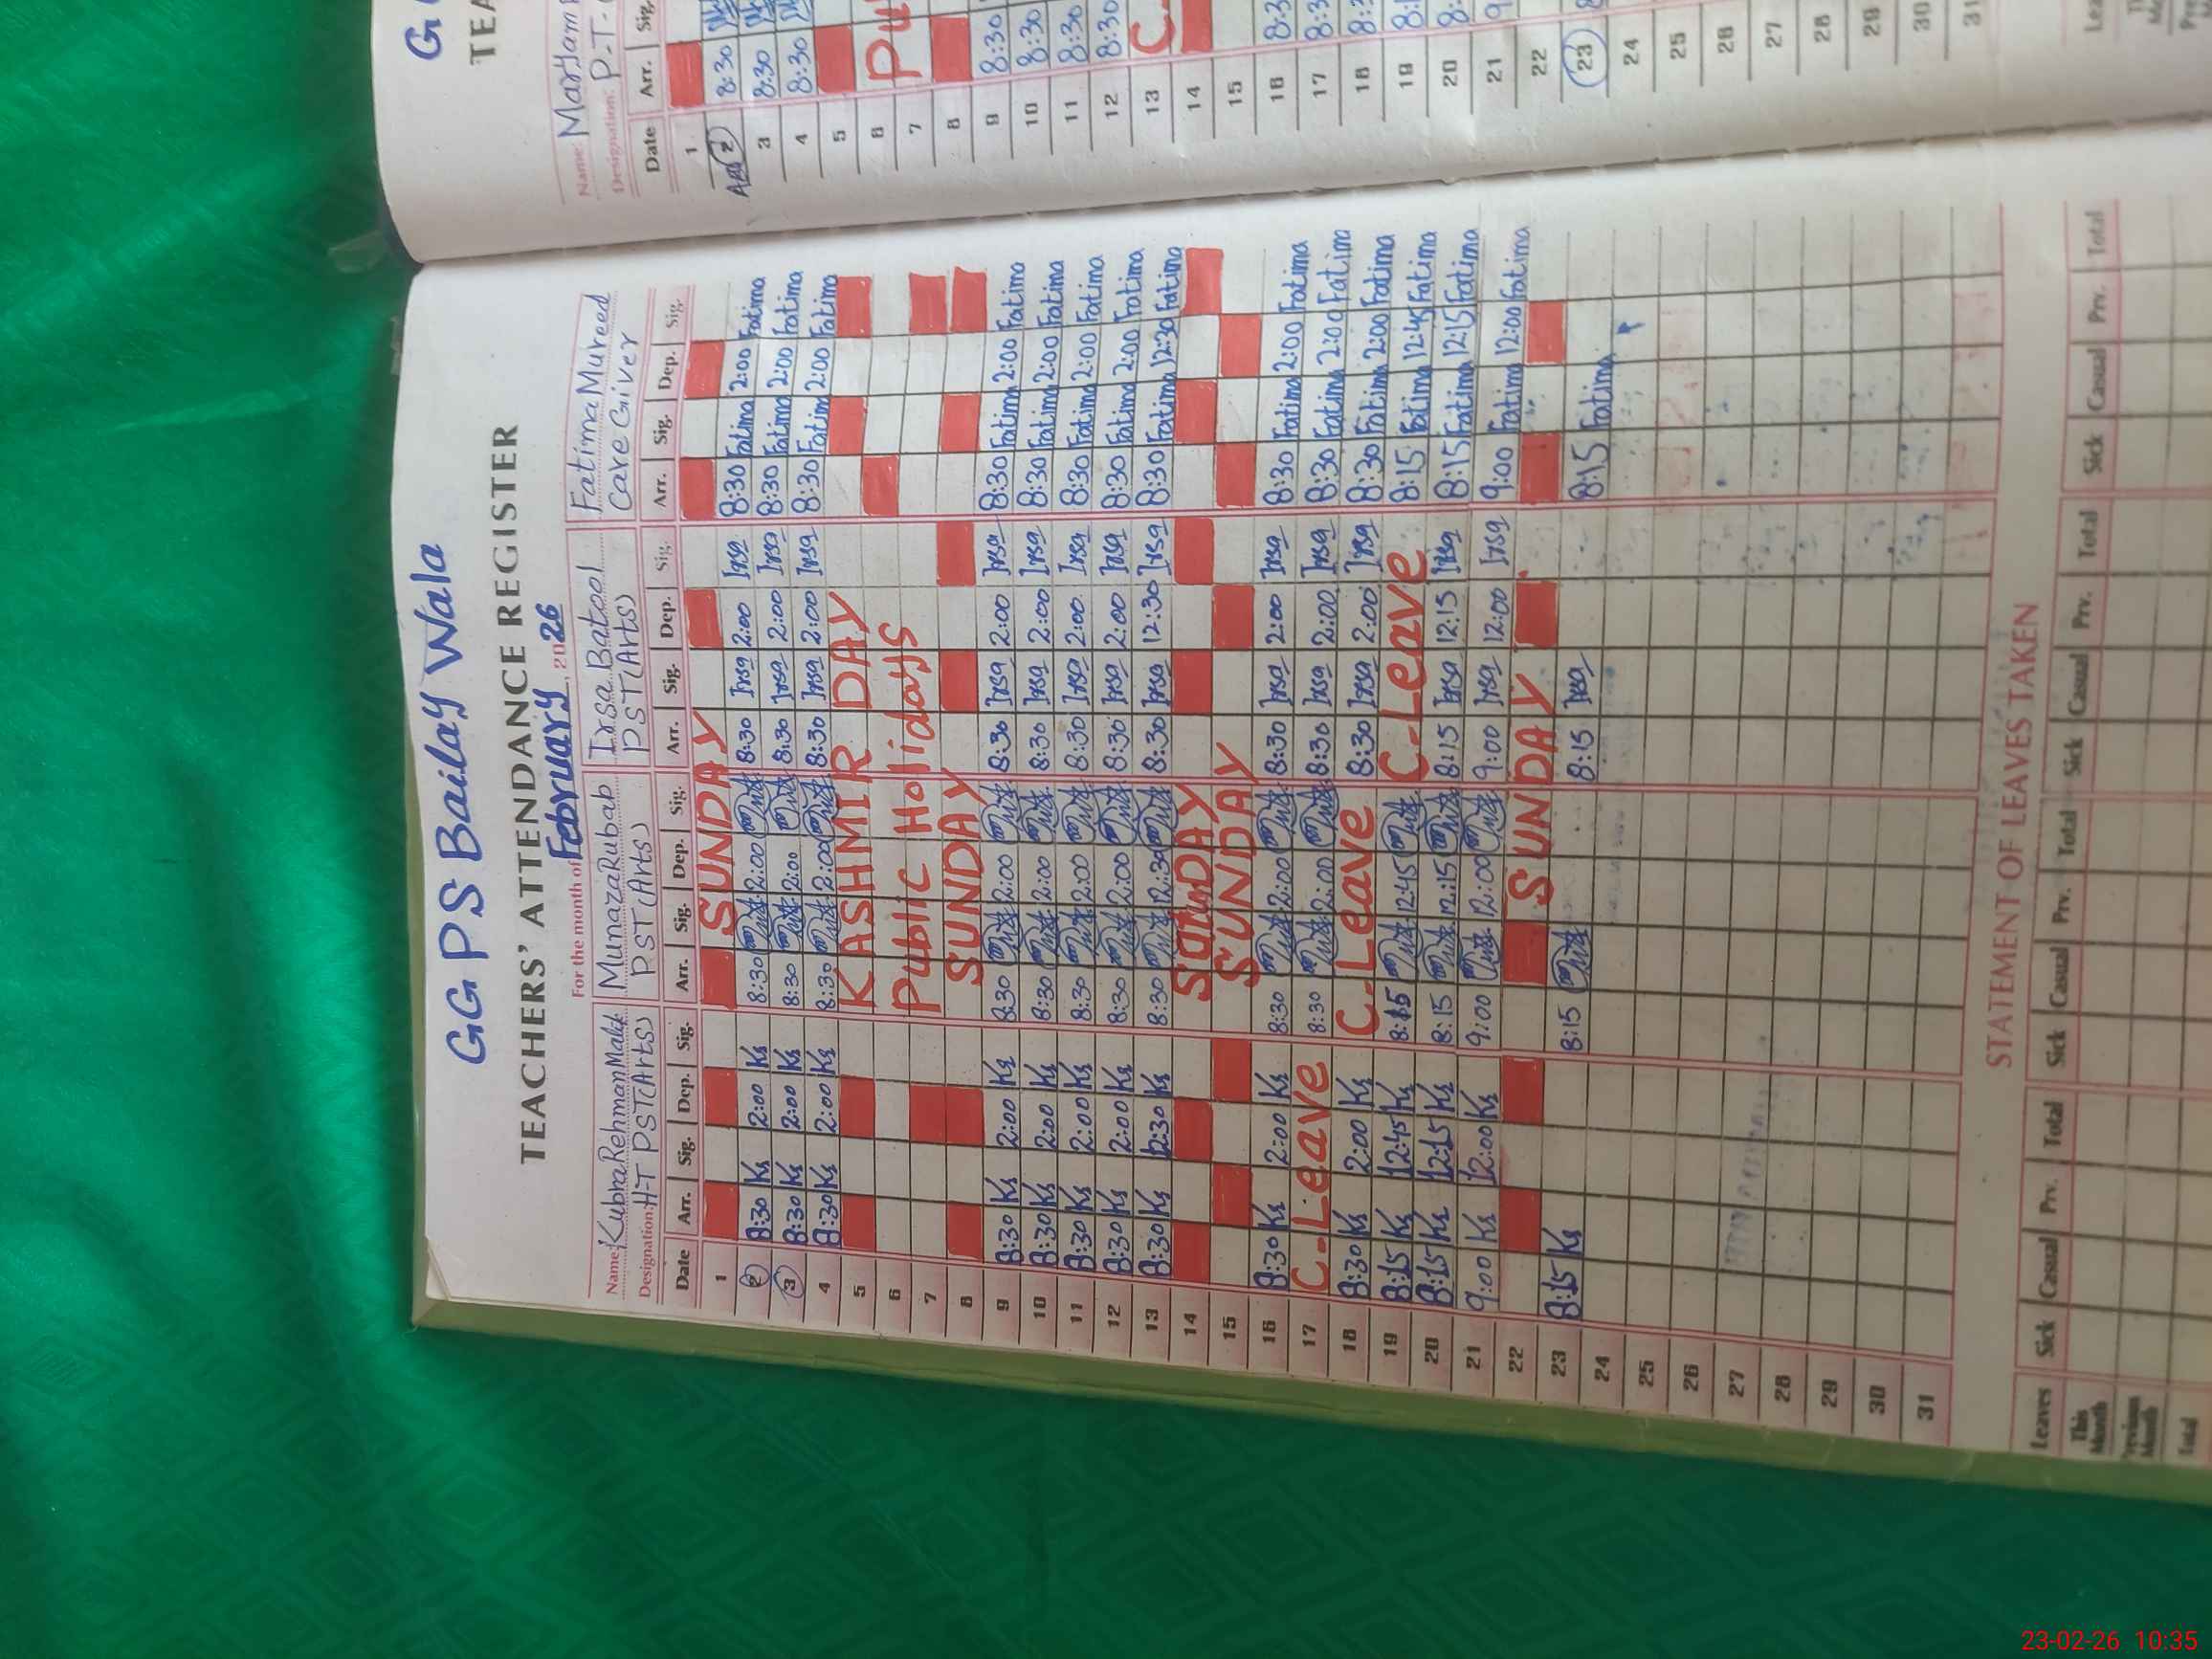 GGPS Bailay Wala
TEACHERS' ATTENDANCE REGISTER
For the month of February, 2026
Name: Kubra Rehman Malik Munaza Rubab Irsa Batool Fatima Mureed
Designation: H-T PST(Arts) PST (Arts) PST (Arts) Care Giver
Date Arr. Sig. Dep. Sig. Arr. Sig. Dep. Sig. Arr. Sig. Dep. Sig. Arr. Sig. Dep. Sig.
1 SUNDAY
2 8:30 Ks 2:00 Ks 8:30 2:00 8:30 Irsa 2:00 Irsa 8:30 Fatima 2:00 Fatima
3 8:30 Ks 2:00 Ks 8:30 2:00 8:30 Irsa 2:00 Irsa 8:30 Fatima 2:00 Fatima
4 8:30 Ks 2:00 Ks 8:30 2:00 8:30 Irsa 2:00 Irsa 8:30 Fatima 2:00 Fatima
5 KASHMIR DAY
6
7 Public Holidays
8 SUNDAY
9 8:30 Ks 2:00 Ks 8:30 2:00 8:30 Irsa 2:00 Irsa 8:30 Fatima 2:00 Fatima
10 8:30 Ks 2:00 Ks 8:30 2:00 8:30 Irsa 2:00 Irsa 8:30 Fatima 2:00 Fatima
11 8:30 Ks 2:00 Ks 8:30 2:00 8:30 Irsa 2:00 Irsa 8:30 Fatima 2:00 Fatima
12 8:30 Ks 2:00 Ks 8:30 2:00 8:30 Irsa 2:00 Irsa 8:30 Fatima 2:00 Fatima
13 8:30 Ks 12:30 Ks 8:30 12:30 8:30 Irsa 12:30 Irsa 8:30 Fatima 12:30 Fatima
14
15 SUNDAY
16 8:30 Ks 2:00 Ks 8:30 2:00 8:30 Irsa 2:00 Irsa 8:30 Fatima 2:00 Fatima
17 C-Leave 8:30 2:00 8:30 Irsa 2:00 Irsa 8:30 Fatima 2:00 Fatima
18 8:30 Ks 2:00 Ks C-Leave 8:30 Irsa 2:00 Irsa 8:30 Fatima 2:00 Fatima
19 8:15 Ks 12:45 Ks 8:15 12:45 C-Leave 8:15 Fatima 12:45 Fatima
20 8:15 Ks 12:15 Ks 8:15 12:15 8:15 Irsa 12:15 Irsa 8:15 Fatima 12:15 Fatima
21 9:00 Ks 12:00 Ks 9:00 12:00 9:00 Irsa 12:00 Irsa 9:00 Fatima 12:00 Fatima
22 SUNDAY
23 8:15 Ks 8:15 8:15 Irsa 8:15 Fatima
24
25
26
27
28
29
30
31
STATEMENT OF LEAVES TAKEN
Leaves Sick Casual Prv. Total Sick Casual Prv. Total Sick Casual Prv. Total Sick Casual Prv. Total
This Month
Previous Month
Total
Name: Maryam
Designation: P-T-
Date Arr. Sig.
1
2 8:30
3 8:30
4 8:30
5
6 Pu
7
8
9 8:30
10 8:30
11 8:30
12 8:30
13 C
14
15
16 8:3
17 8:3
18 8:
19 8:
20 8:
21 9
22
23
24
25
26
27
28
29
30
31
23-02-26 10:35